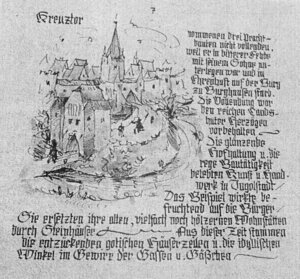 Kreuztor
7
nommenen drei Pracht-
bauten nicht vollenden,
weil er in bitterer Fehde
mit seinem Sohne un-
terlegen war und in
Ehrenhaft auf der Burg
zu Burghausen starb.
Die Vollendung war
den reichen Lands-
huter Herzogen
vorbehalten
Die glänzende
Hofhaltung u. die
rege Bautätigkeit
belebten Kunst u. Hand-
werk in Ingolstadt
Das Beispiel wirkte be-
fruchtend auf die Bürger
Sie ersetzten ihre alten, vielfach noch hölzernen Wohnbauten
durch Steinhäuser Aus dieser Zeit stammen
die entzückenden gotischen Häuserzeilen u. die idyllischen
Winkel im Gewirre der Gassen u. Gäßchen